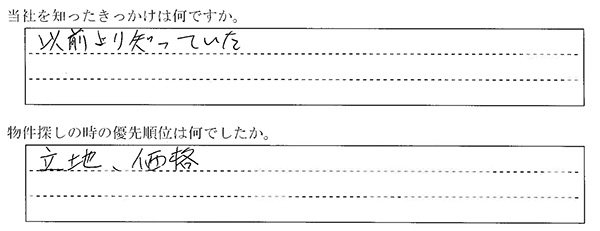 当社を知ったきっかけは何ですか。
以前より知っていた
物件探しの時の優先順位は何でしたか。
立地、価格